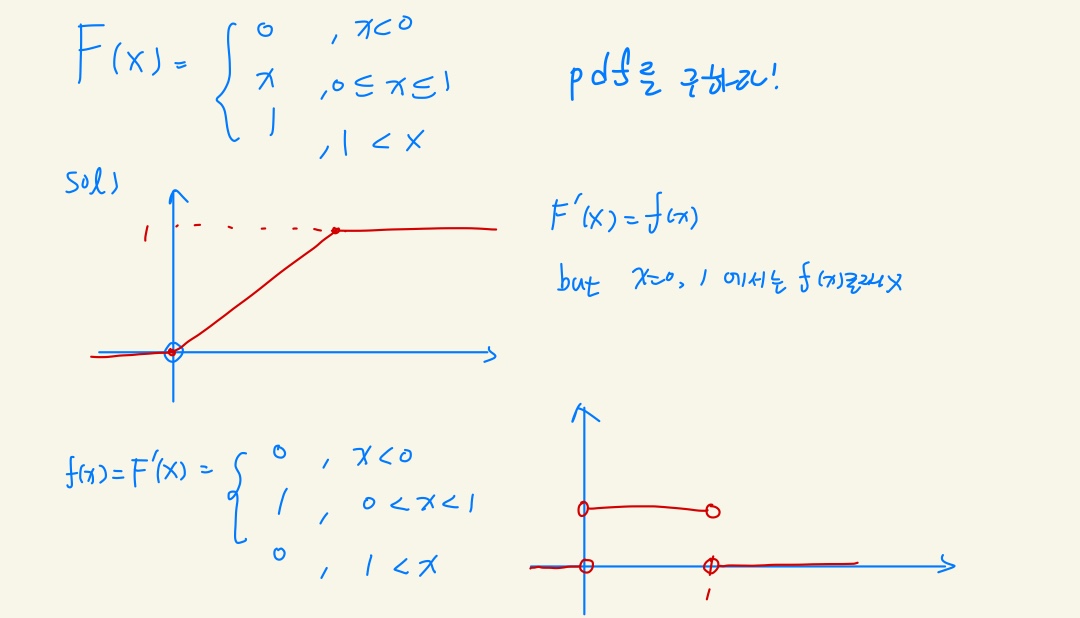 F(x) = { 0 , x<0
x , 0 ≤ x ≤ 1
1 , 1 < x
pdf를 구하고!
sol)
1
F'(x) = f(x)
but x=0, 1 에서는 f(x)존재X
f(x) = F'(x) = { 0 , x<0
1 , 0 < x < 1
0 , 1 < x
1